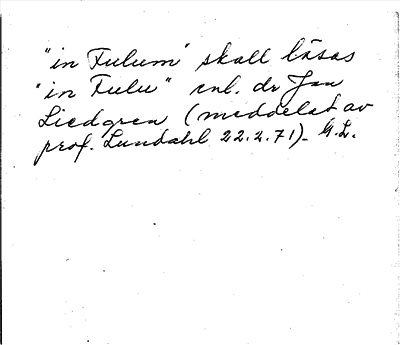 "in Fulum" skall läsas
"in Fulu" enl. dr Jan
Liedgren (meddelat av
prof. Lundahl 22.2.71). G.L.